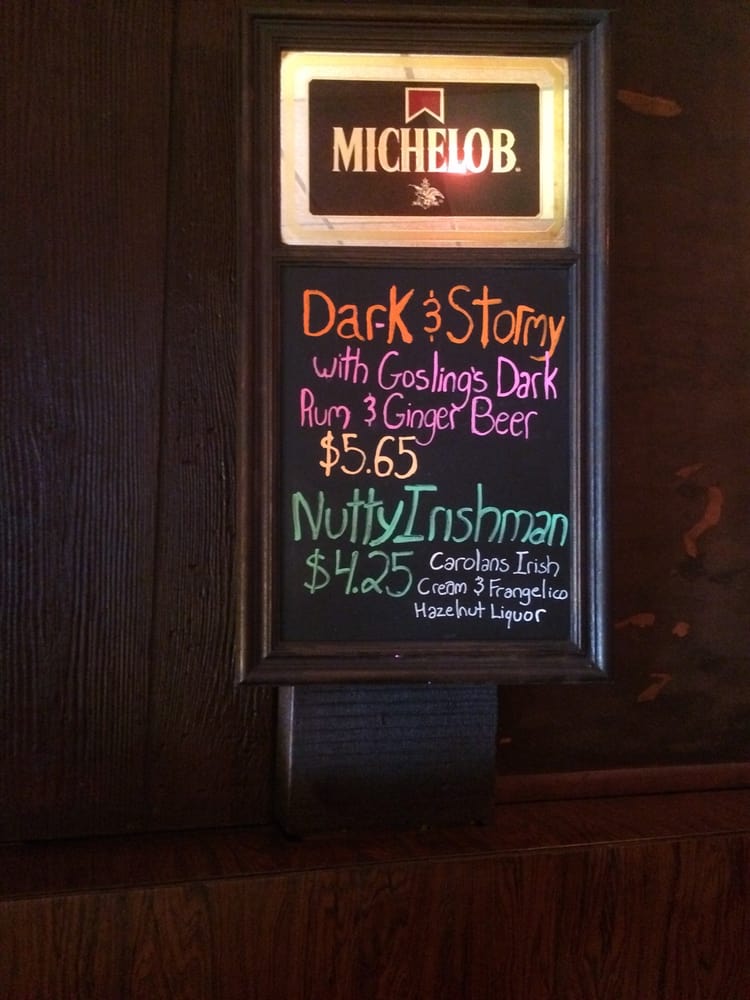 MICHELOB
Dark & Stormy
with Gosling's Dark
Rum & Ginger Beer
$5.65
Nutty Irishman
$4.25 Carolans Irish
Cream & Frangelico
Hazelnut Liquor